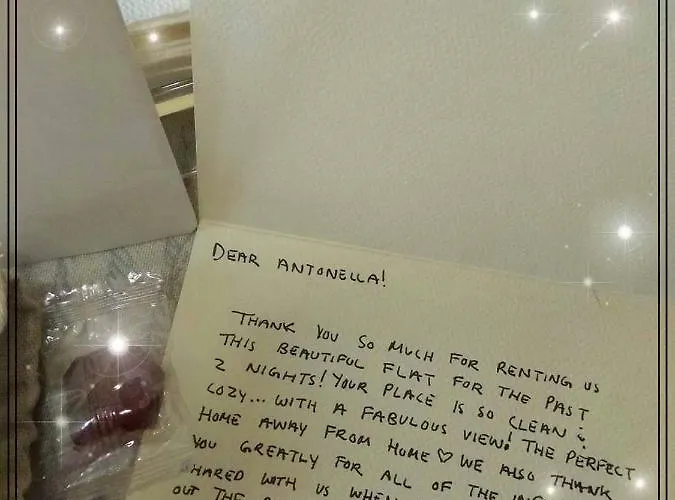 DEAR ANTONELLA!
THANK YOU SO MUCH FOR RENTING US
THIS BEAUTIFUL FLAT FOR THE PAST
2 NIGHTS! YOUR PLACE IS SO CLEAN &
COZY... WITH A FABULOUS VIEW! THE PERFECT
HOME AWAY FROM HOME ♡ WE ALSO THANK
YOU GREATLY FOR ALL OF THE
SHARED WITH US WHEN
OUT THE